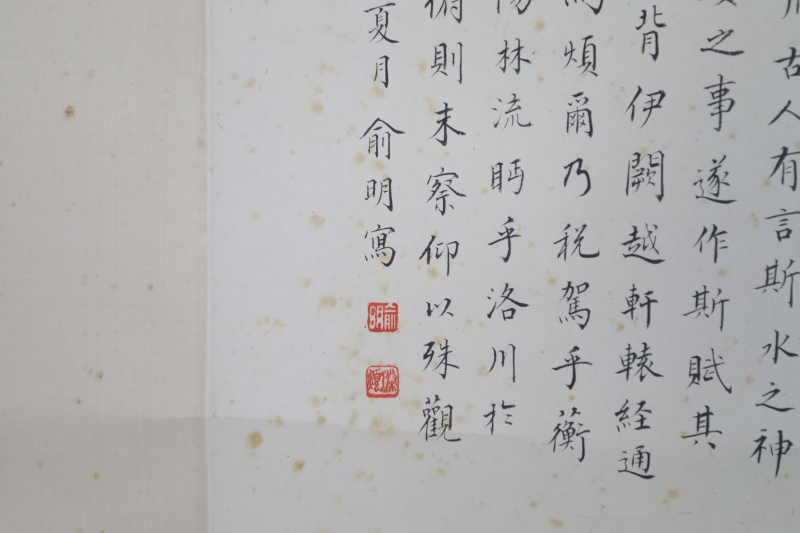 古人有言斯水之神
之事遂作斯賦其
背伊闕越軒轅経通
煩爾乃税駕乎蘅
林流眄乎洛川於
俯則未察仰以殊觀
夏月俞明寫
俞明